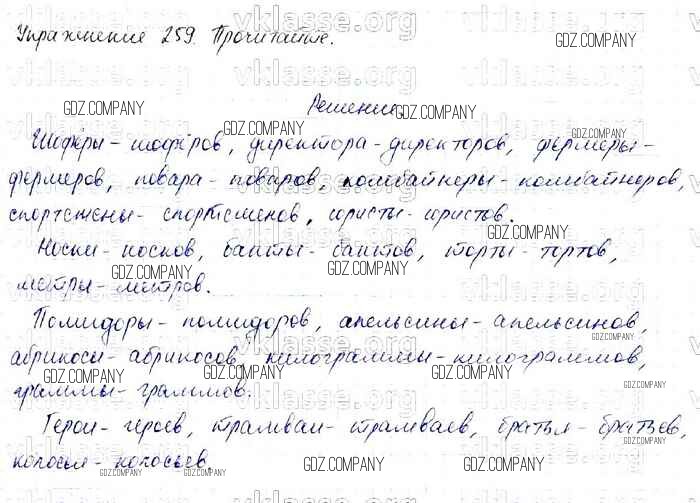 Упражнение 259. Прочитайте.
Решение
Шофёры - шофёров, директора - директоров, фермеры -
фермеров, повара - поваров, комбайнеры - комбайнеров,
спортсмены - спортсменов, юристы - юристов.
Носки - носков, банты - бантов, торты - тортов,
метры - метров.
Помидоры - помидоров, апельсины - апельсинов,
абрикосы - абрикосов, килограммы - килограммов,
граммы - граммов.
Герои - героев, трамваи - трамваев, братья - братьев,
колосья - колосьев
vklasse.org
GDZ.COMPANY